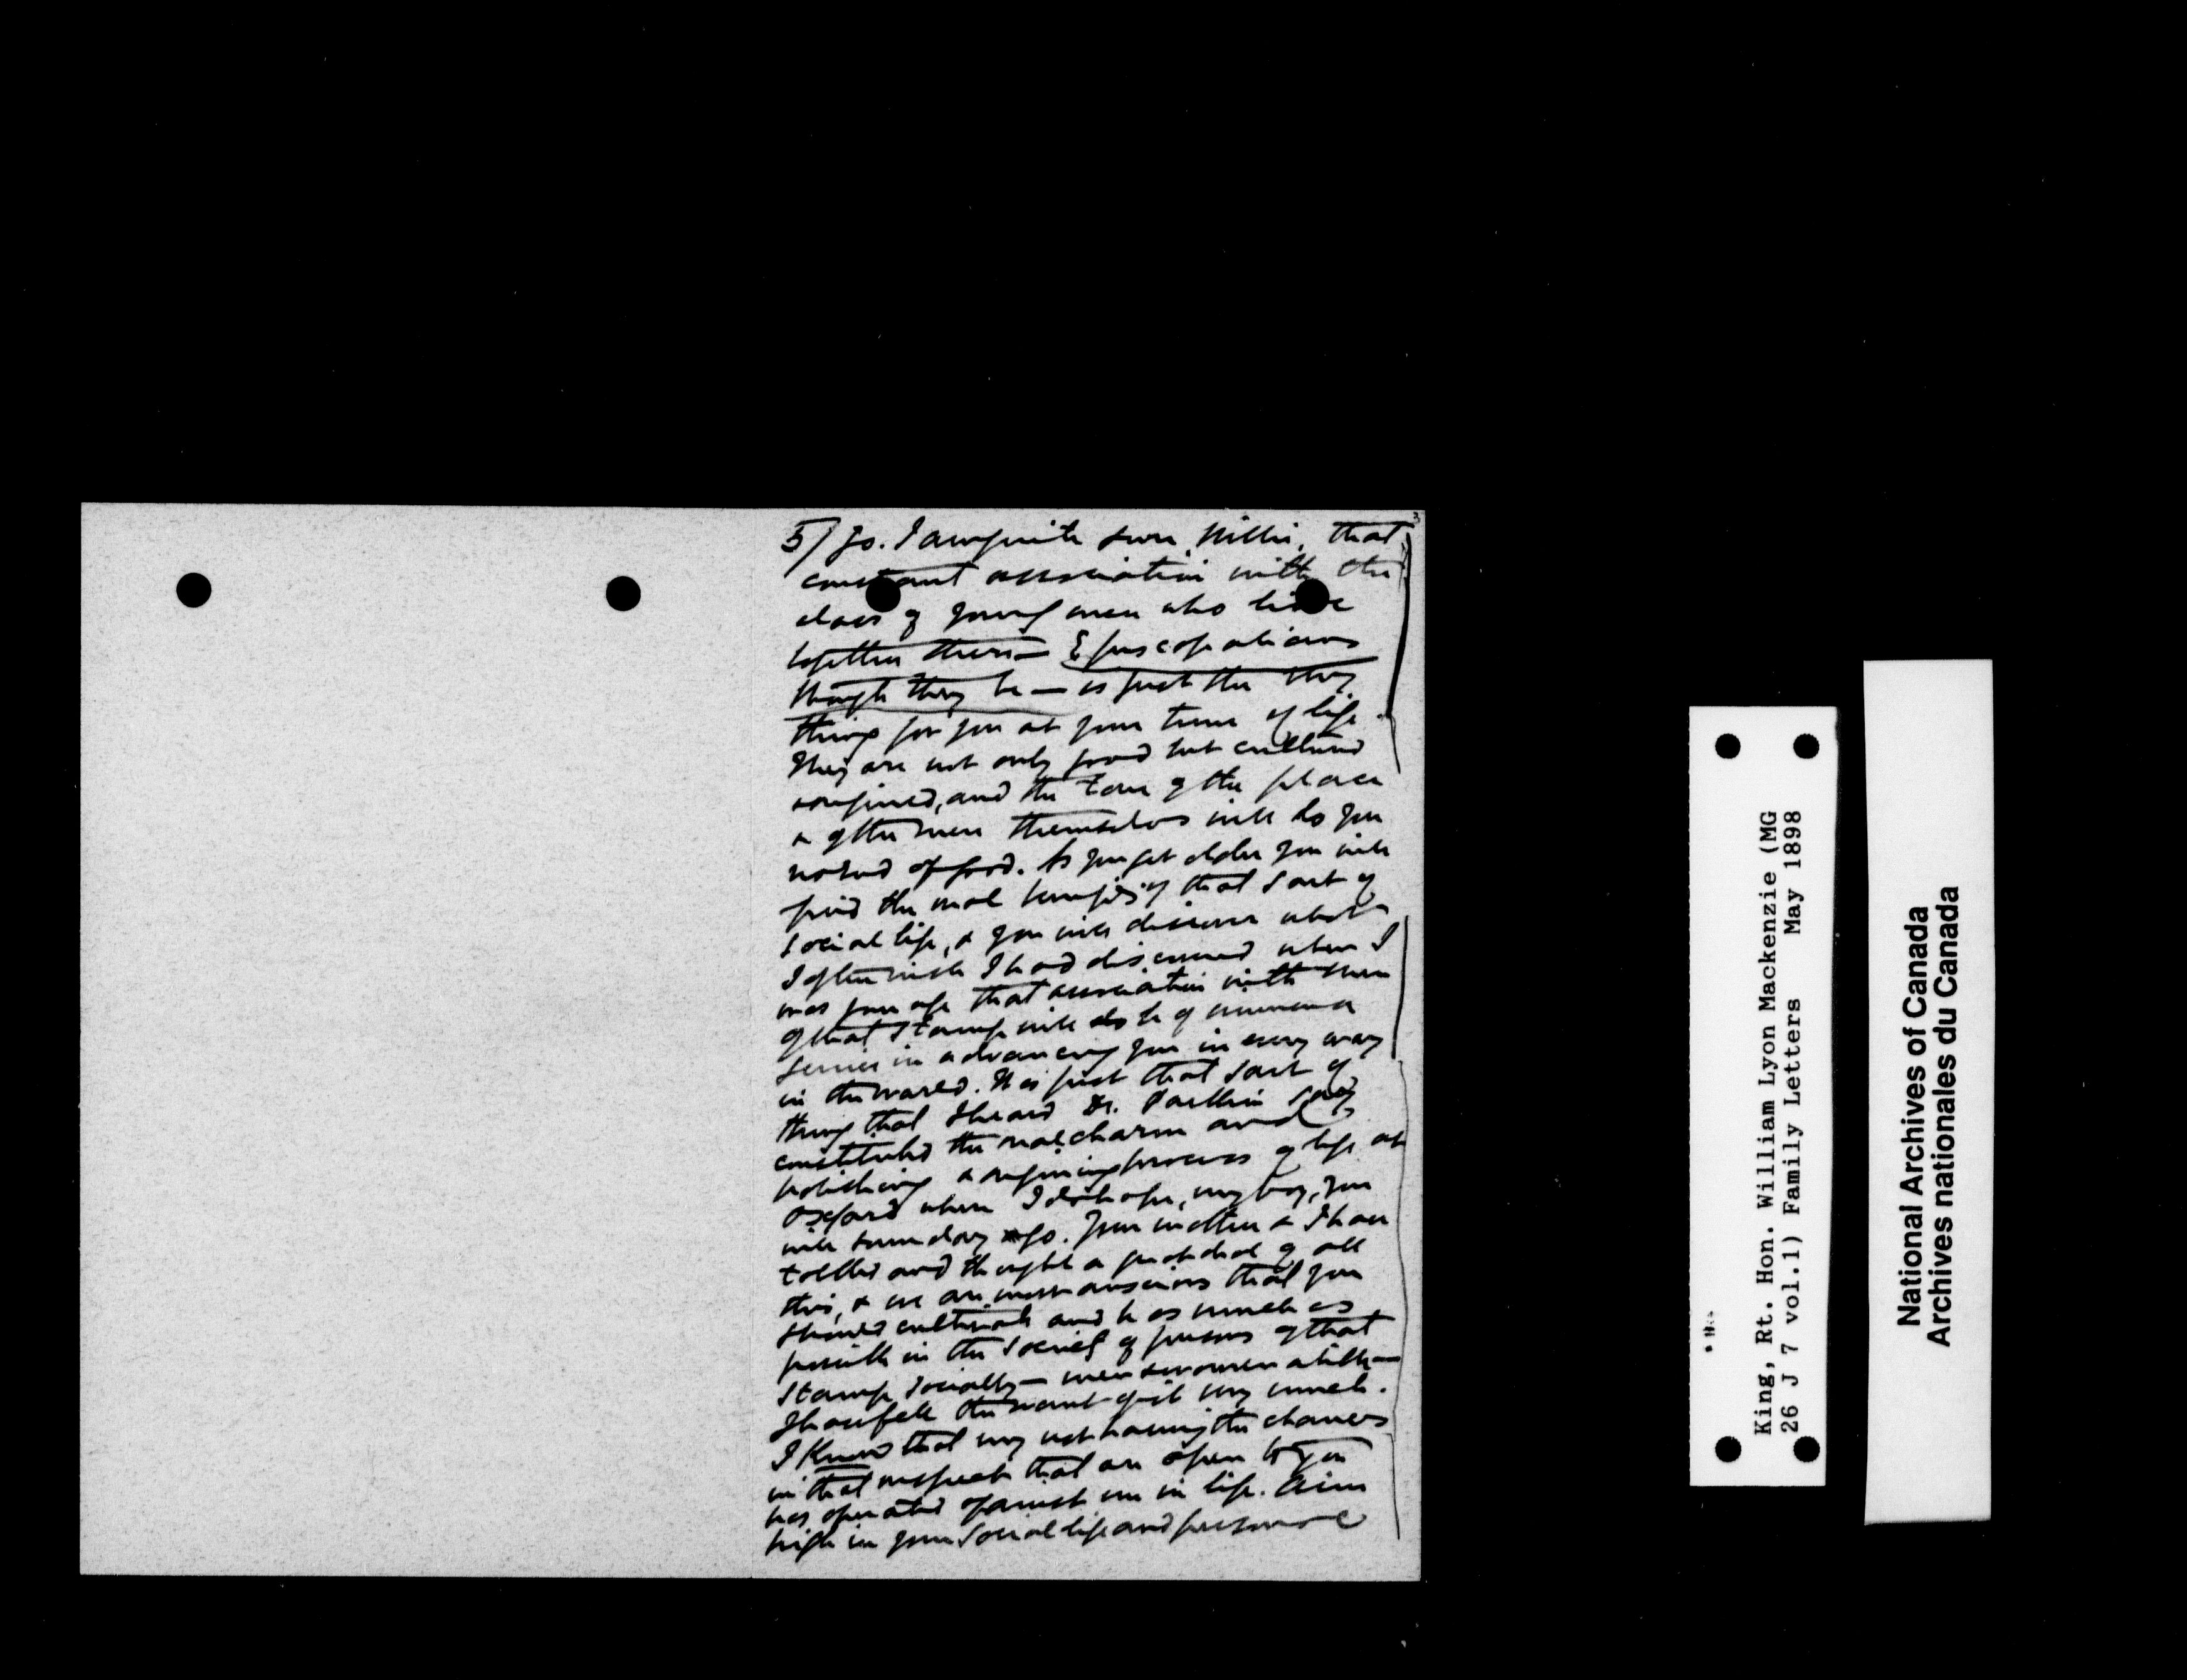 5/ go. I am quite sure, Willie, that
constant association with the
class of young men who live
together there — Episcopalians
though they be — is just the very
thing for you at your time of life.
They are not only good but cultured
& refined, and the tone of the place
& of the men themselves will do you
no end of good. As you get older you will
find the real benefits of that sort of
social life, & you will discover what
I often wish I had discovered when I
was your age that association with men
of that stamp will be of immense
service in advancing you in every way
in the world. It is just that sort of
thing that I heard Dr. Parkin say
constituted the real charm and
polishing & refining process of life at
Oxford where I do hope, my boy, you
will some day go. Your mother & I have
talked and thought a great deal of all
this, & we are most anxious that you
should cultivate and be as much as
possible in the society of persons of that
stamp socially — men & women alike —
I have felt the want of it very much.
I know that my not having the chances
in that respect that are open to you
has operated against me in life. Aim
high in your social life and personal
3
King, Rt. Hon. William Lyon Mackenzie (MG
26 J 7 vol.1) Family Letters May 1898
National Archives of Canada
Archives nationales du Canada